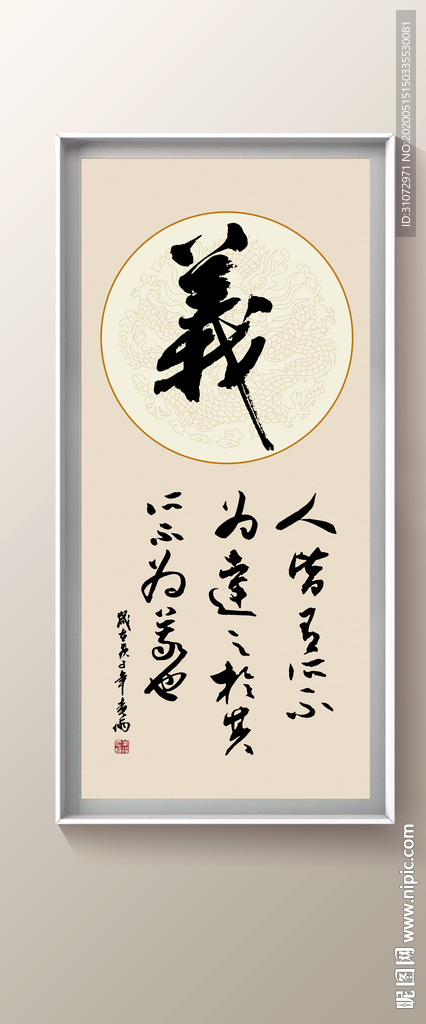 義
人皆有所不
为達之於其
所不为義也
歲在庚子年春雨
ID:31072971 NO:20200515150335530081
昵图网 www.nipic.com